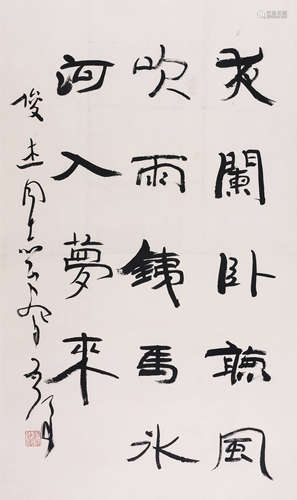 夜闌卧聽風
吹雨鐵馬冰
河入夢來
俊杰同志